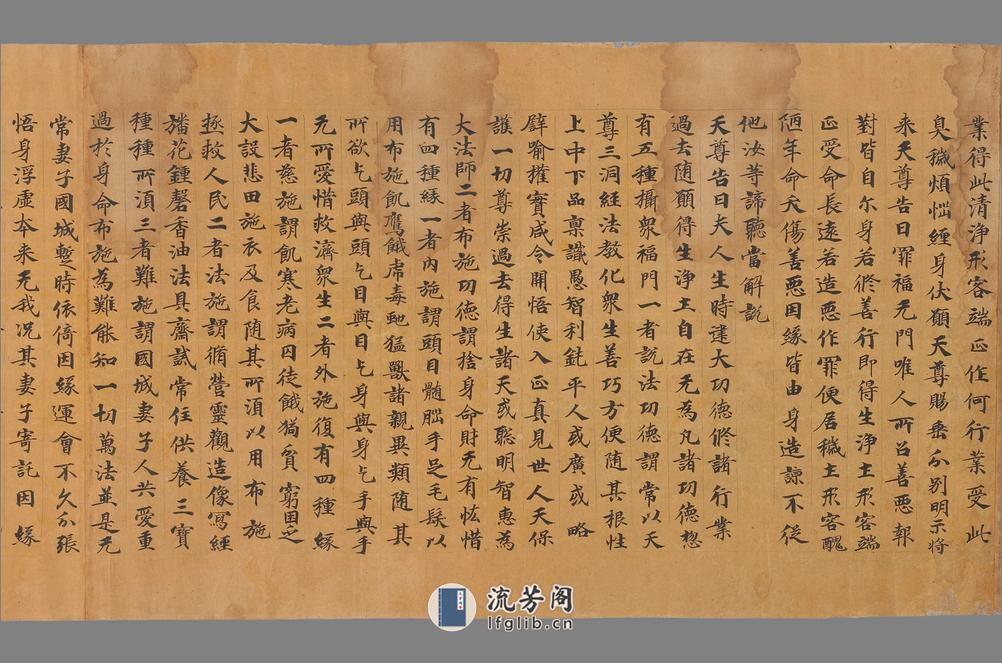 業得此清淨形容端正作何行業受此
臭穢煩惱經身伏願天尊賜垂分別明示將
来天尊告曰罪福无門唯人所召善惡報
對皆自尔身若修善行即得生淨土形容端
正受命長遠若造惡作罪便居穢土形容醜
陋年命夭傷善惡因緣皆由身造諒不從
他汝等諦聽當解說
天尊告曰夫人生時建大功德修諸行業
過去随願得生淨土自在无為凡諸功德惣
有五種攝衆福門一者說法功德謂常以天
尊三洞經法教化衆生善巧方便随其根性
上中下品稟識愚智利鈍平人或廣或略
譬喻權實咸令開悟使入正真見世人天保
護一切尊崇過去得生諸天或聡明智惠為
大法師二者布施功德謂捨身命財无有恡惜
有四種緣一者內施謂頭目髓腦手足毛髮以
用布施飢鷹餓虎毒虵猛獸諸親異類随其
所欲乞頭與頭乞目與目乞身與身乞手與手
无所愛惜救濟衆生二者外施復有四種緣
一者慈施謂飢寒老病囚徒餓猶貧窮困之
大設悲田施衣及食随其所須以用布施
拯救人民二者法施謂循營靈觀造像寫經
旛花鍾磬香油法具齋試常住供養三寶
種種所須三者難施謂國城妻子人共愛重
過於身命布施為難能知一切萬法並是无
常妻子國城暫時依倚因緣運會不久分張
悟身浮虛本来无我况其妻子寄託因緣
流芳阁
lfglib.cn